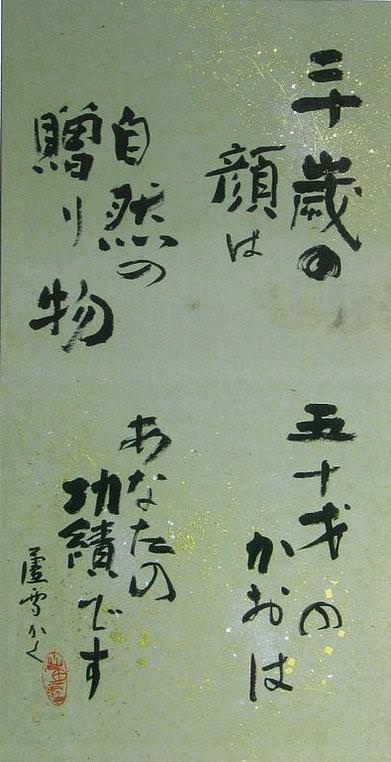 三十歳の
顔は
自然の
贈り物
五十才の
かおは
あなたの
功績です
蘆雪かく